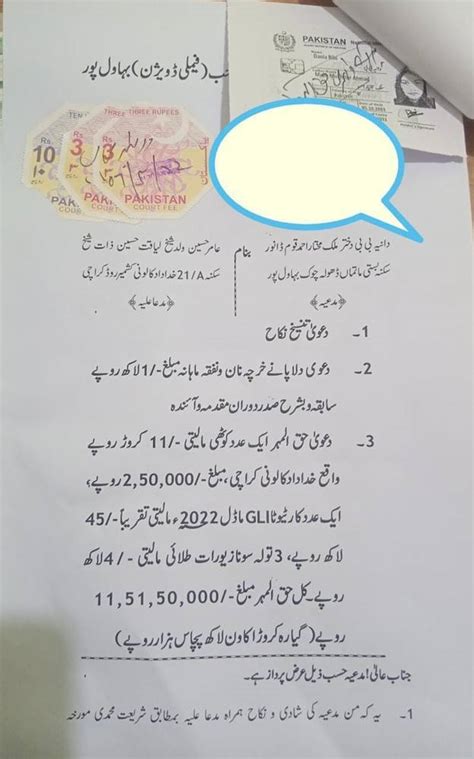 PAKISTAN
Dania Bibi
ب (فیملی ڈویژن) بہاولپور
TEN
THREE
THREE RUPEES
Rs. 10
Rs. 3
Rs. 3
PAKISTAN
COURT FEE
دانیہ بی بی دختر ملک مختار احمد قوم ڈانور
بنام
عامر حسین ولد شیخ لیاقت حسین ذات شیخ
سکنہ بستی ماتماں ڈھولہ چوک بہاول پور
سکنہ 21/A خداداد کالونی کشمیر روڈ کراچی
﴿مدعیہ﴾
﴿مدعا علیہ﴾
1۔ دعویٰ تنسیخ نکاح
2۔ دعوی دلا پانے خرچہ نان و نفقہ ماہانہ مبلغ -/1 لاکھ روپے
سابقہ و بشرح صدر دوران مقدمہ و آئندہ
3۔ دعویٰ حق المہر ایک عدد کوٹھی مالیتی -/11 کروڑ روپے
واقع خداداد کالونی کراچی، مبلغ -/2,50,000 روپے،
ایک عدد کار ٹیوٹا GLI ماڈل 2022ء مالیتی تقریباً -/45
لاکھ روپے، 3 تولہ سونا زیورات طلائی مالیتی -/4 لاکھ
روپے۔ کل حق المہر مبلغ -/11,51,50,000
روپے (گیارہ کروڑ اکاون لاکھ پچاس ہزار روپے)
جناب عالی! مدعیہ حسب ذیل عرض پرداز ہے۔
1۔ یہ کہ من مدعیہ کی شادی و نکاح ہمراہ مدعا علیہ بمطابق شریعت محمدی مورخہ